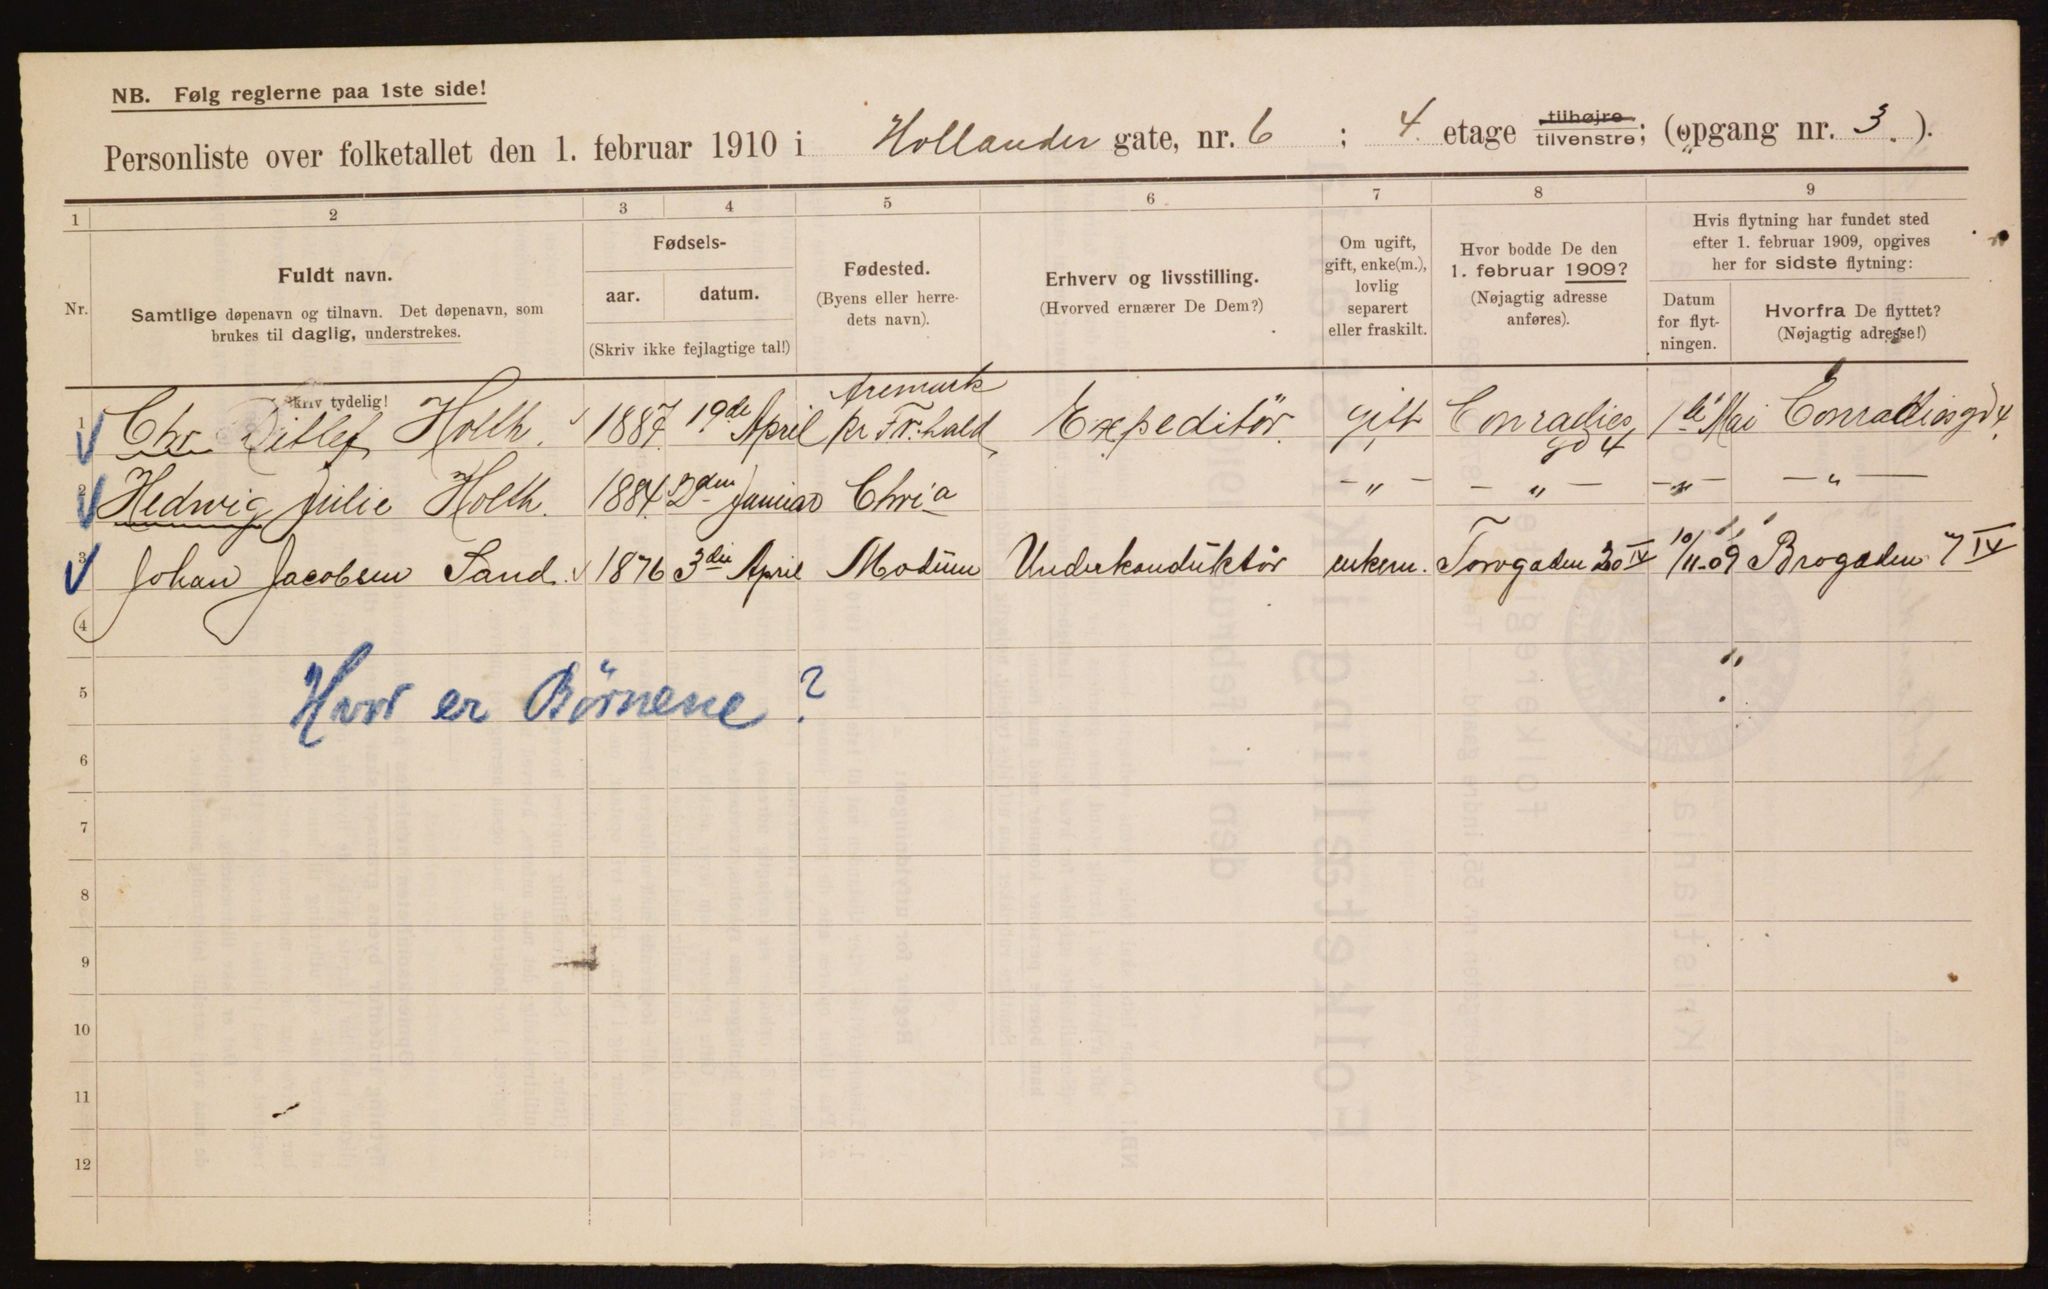 NB. Følg reglerne paa 1ste side!
Personliste over folketallet den 1. februar 1910 i Hollander gate, nr. 6 ; 4. etage tilhøjre tilvenstre; (opgang nr. 3.).
1 2 3 4 5 6 7 8 9
Nr.
Fuldt navn.
Samtlige døpenavn og tilnavn. Det døpenavn, som
brukes til daglig, understrekes.
Fødsels-
aar. datum.
(Skriv ikke fejlagtige tal!)
Fødested.
(Byens eller herre-
dets navn).
Erhverv og livsstilling.
(Hvorved ernærer De Dem?)
Om ugift,
gift, enke(m.),
lovlig
separert
eller fraskilt.
Hvor bodde De den
1. februar 1909?
(Nøjagtig adresse
anføres).
Hvis flytning har fundet sted
efter 1. februar 1909, opgives
her for sidste flytning:
Datum
for flyt-
ningen.
Hvorfra De flyttet?
(Nøjagtig adresse!)
Skriv tydelig!
1 Chr. Ditlef Holth. 1887 19de April Aremark pr Fr.hald Expeditör. gift Conradies gd 4 1ste Mai Conradiesgd 4.
2 Hedwig Julie Holth. 1884. 2den Januar Chria — „ — — „ — — „ — — „ —
3 Johan Jacobsen Sand. 1876 3die April Modum Underkonduktör enkem. Torvgaden 20 IV 10/11-09 Brogaden 7 IV
4
5 Hvor er Börnene?
6
7
8
9
10
11
12